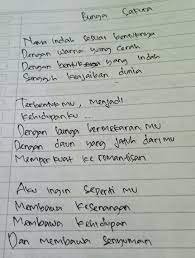 Bunga Sakura
Nama indah sesuai bentuknya
Dengan warna yang cerah
Dengan bentuk yang indah
Sungguh keajaiban dunia
Terbentukmu, menjadi
kehidupanku...
Dengan bunga bermekaran mu
Dengan daun yang jatuh dari mu
Memperkuat keromantisan
Aku ingin seperti mu
Membawa kesenangan
Membawa kehidupan
Dan membawa senyuman